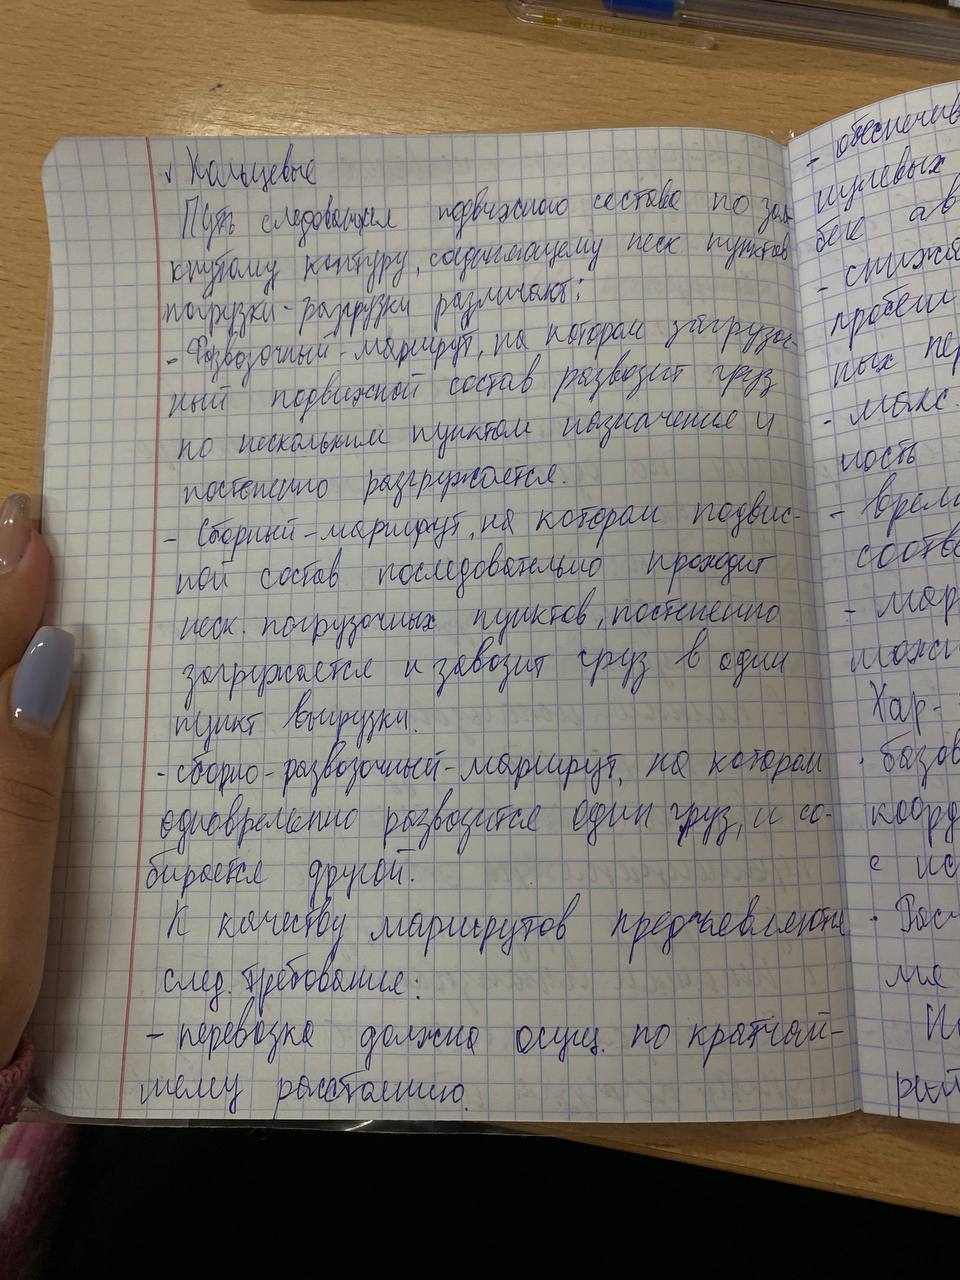 ✓ Кальцевые
Путь следования подвижного состава по зам-
кнутому контуру, соединяющему неск пунктов
погрузки-разгрузки различают:
- Развозочный - маршрут, на котором загружен-
ный подвижной состав развозит груз
по нескольким пунктам назначения и
постепенно разгружается.
- Сборный - маршрут, на котором подвиж-
ной состав последовательно проходит
неск. погрузочных пунктов, постепенно
загружается и завозит груз в один
пункт выгрузки.
- сборно-развозочный - маршрут, на котором
одновременно развозится один груз, и со-
бирается другой.
К качеству маршрутов предъявляются
след. требования:
- перевозка должна осущ. по кратчай-
шему расстоянию.
- обеспечив
нулевых
беге ав
- сниже
пробеги
ных пер
- макс.
ность
- врем
соотве
- мар
можн
Хар-
· базов
коорд
с ис
· Рас
ма
рит